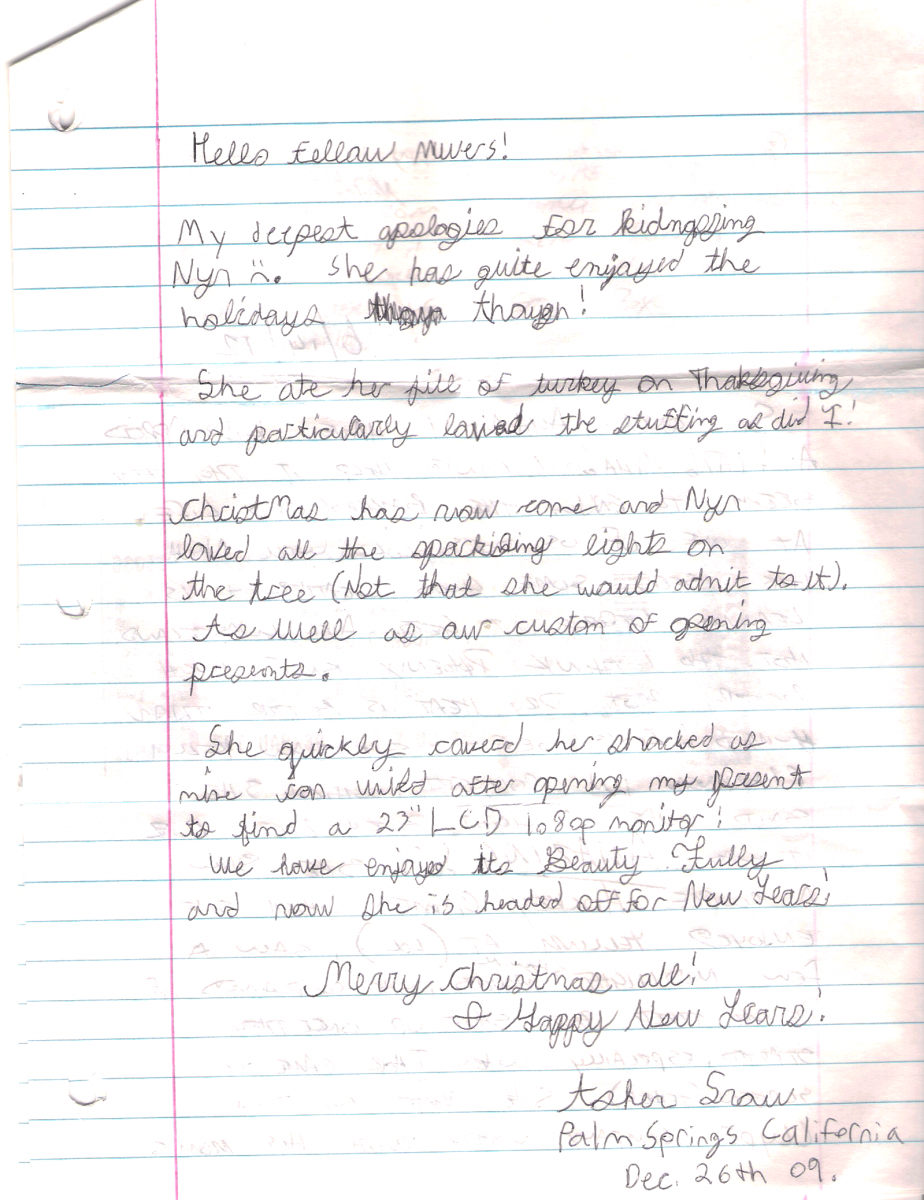 Hello Fellow Mwers!
My deepest apologies for kidnapping
Nyn :. She has quite enjoyed the
holidays though!
She ate her fill of turkey on Thanksgiving
and particularly loved the stuffing as did I!
Christmas has now come and Nyn
loved all the sparkling lights on
the tree (Not that she would admit to it).
As Well as our custom of opening
presents.
She quickly covered her shocked as
mine after opening my present
to find a 23" LCD 1080p monitor!
We have enjoyed its Beauty Fully
and now she is headed off for New Years!
Merry Christmas all!
& Happy New Years!
Asher
Palm Springs California
Dec. 26th 09.